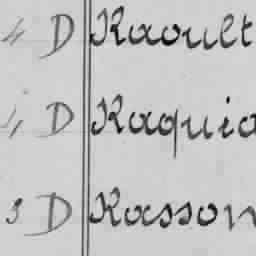 4 D Raoult
4 D Raquia
3 D Rasson